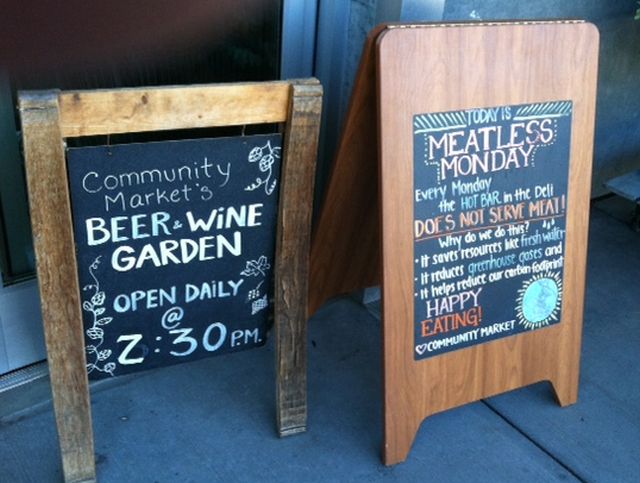 Community
Market's
BEER & WINE
GARDEN
OPEN DAILY
@
2:30 P.M.
TODAY IS
MEATLESS
MONDAY
Every Monday
the HOT BAR in the Deli
DOES NOT SERVE MEAT!
Why do we do this?
• It saves resources like fresh water
• It reduces greenhouse gases and
• It helps reduce our carbon footprint
HAPPY
EATING!
♡ COMMUNITY MARKET